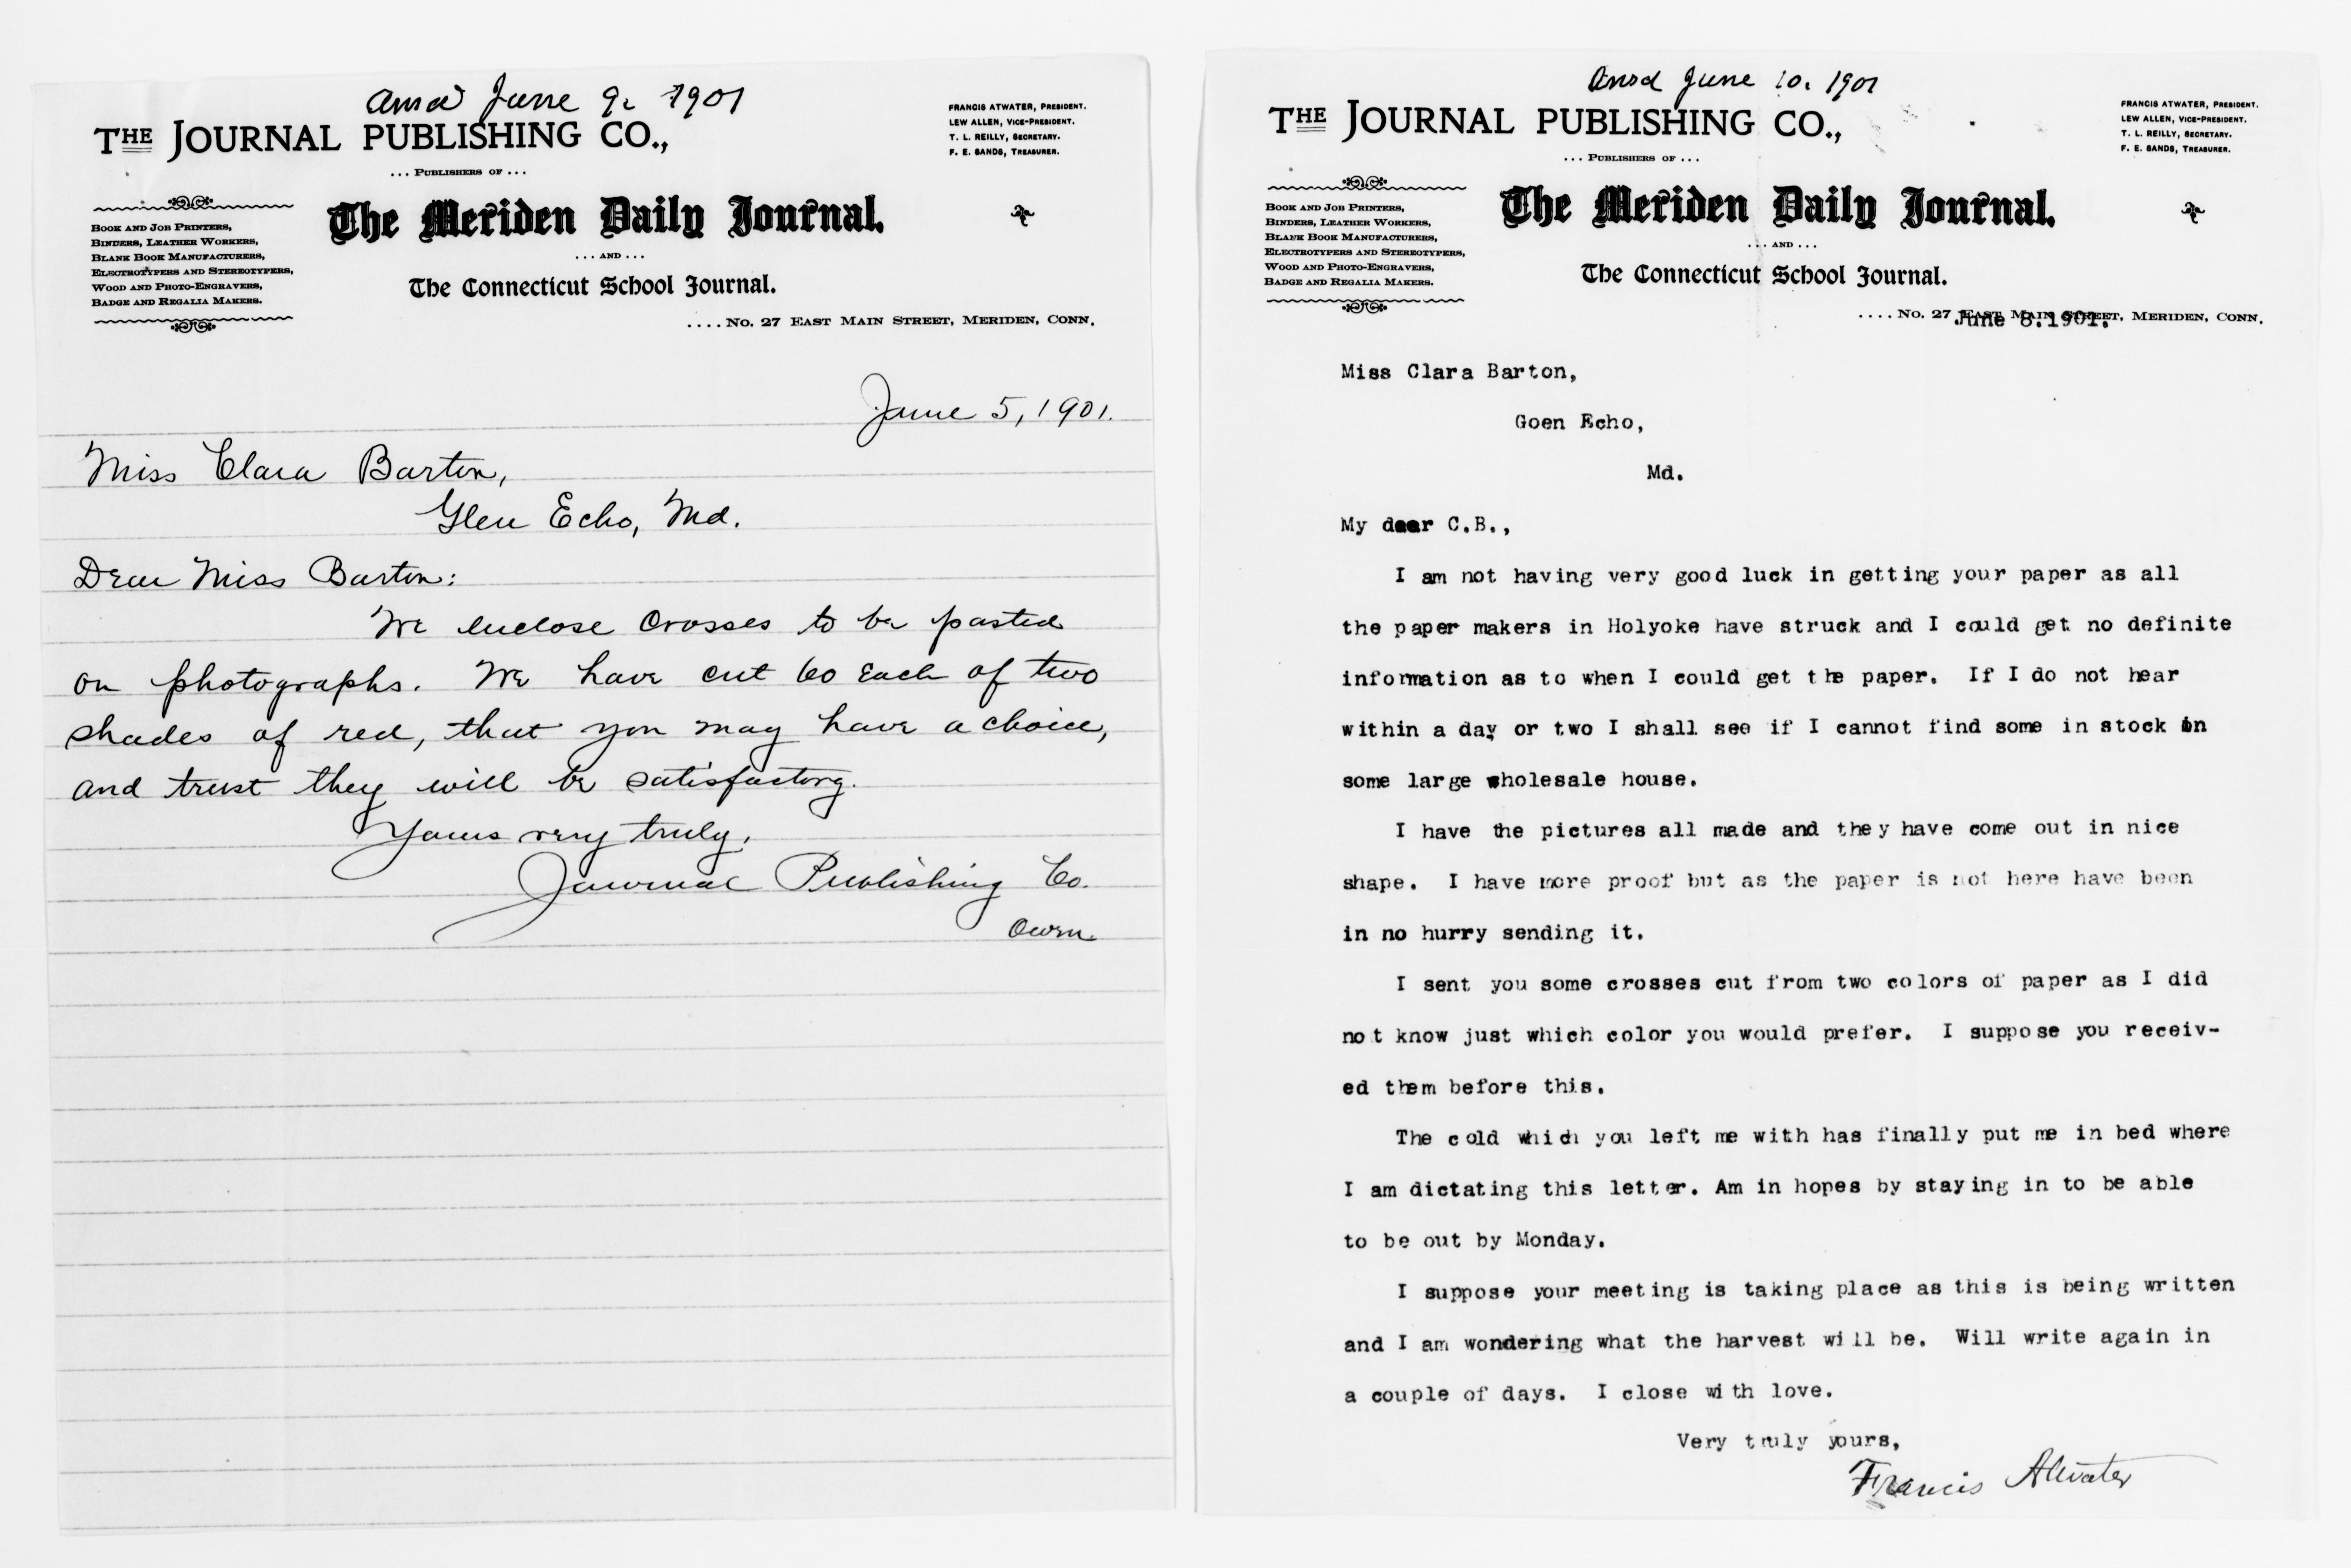 Ansd June 9. 1901
THE JOURNAL PUBLISHING CO.,
FRANCIS ATWATER, PRESIDENT.
LEW ALLEN, VICE-PRESIDENT.
T. L. REILLY, SECRETARY.
F. E. SANDS, TREASURER.
... PUBLISHERS OF ...
BOOK AND JOB PRINTERS,
BINDERS, LEATHER WORKERS,
BLANK BOOK MANUFACTURERS,
ELECTROTYPERS AND STEREOTYPERS,
WOOD AND PHOTO-ENGRAVERS,
BADGE AND REGALIA MAKERS.
The Meriden Daily Journal.
... AND ...
The Connecticut School Journal.
.... NO. 27 EAST MAIN STREET, MERIDEN, CONN.
June 5, 1901.
Miss Clara Barton,
Glen Echo, Md.
Dear Miss Barton:
We enclose crosses to be pasted
on photographs. We have cut 60 each of two
shades of red, that you may have a choice,
and trust they will be satisfactory.
Yours very truly,
Journal Publishing Co.
Ansd June 10. 1901
THE JOURNAL PUBLISHING CO.,
FRANCIS ATWATER, PRESIDENT.
LEW ALLEN, VICE-PRESIDENT.
T. L. REILLY, SECRETARY.
F. E. SANDS, TREASURER.
... PUBLISHERS OF ...
BOOK AND JOB PRINTERS,
BINDERS, LEATHER WORKERS,
BLANK BOOK MANUFACTURERS,
ELECTROTYPERS AND STEREOTYPERS,
WOOD AND PHOTO-ENGRAVERS,
BADGE AND REGALIA MAKERS.
The Meriden Daily Journal.
... AND ...
The Connecticut School Journal.
.... NO. 27 EAST MAIN STREET, MERIDEN, CONN.
June 8.1901.
Miss Clara Barton,
Goen Echo,
Md.
My dear C.B.,
I am not having very good luck in getting your paper as all
the paper makers in Holyoke have struck and I could get no definite
information as to when I could get the paper. If I do not hear
within a day or two I shall see if I cannot find some in stock in
some large wholesale house.
I have the pictures all made and they have come out in nice
shape. I have more proof but as the paper is not here have been
in no hurry sending it.
I sent you some crosses cut from two colors of paper as I did
not know just which color you would prefer. I suppose you receiv-
ed them before this.
The cold which you left me with has finally put me in bed where
I am dictating this letter. Am in hopes by staying in to be able
to be out by Monday.
I suppose your meeting is taking place as this is being written
and I am wondering what the harvest will be. Will write again in
a couple of days. I close with love.
Very truly yours,
Francis Atwater